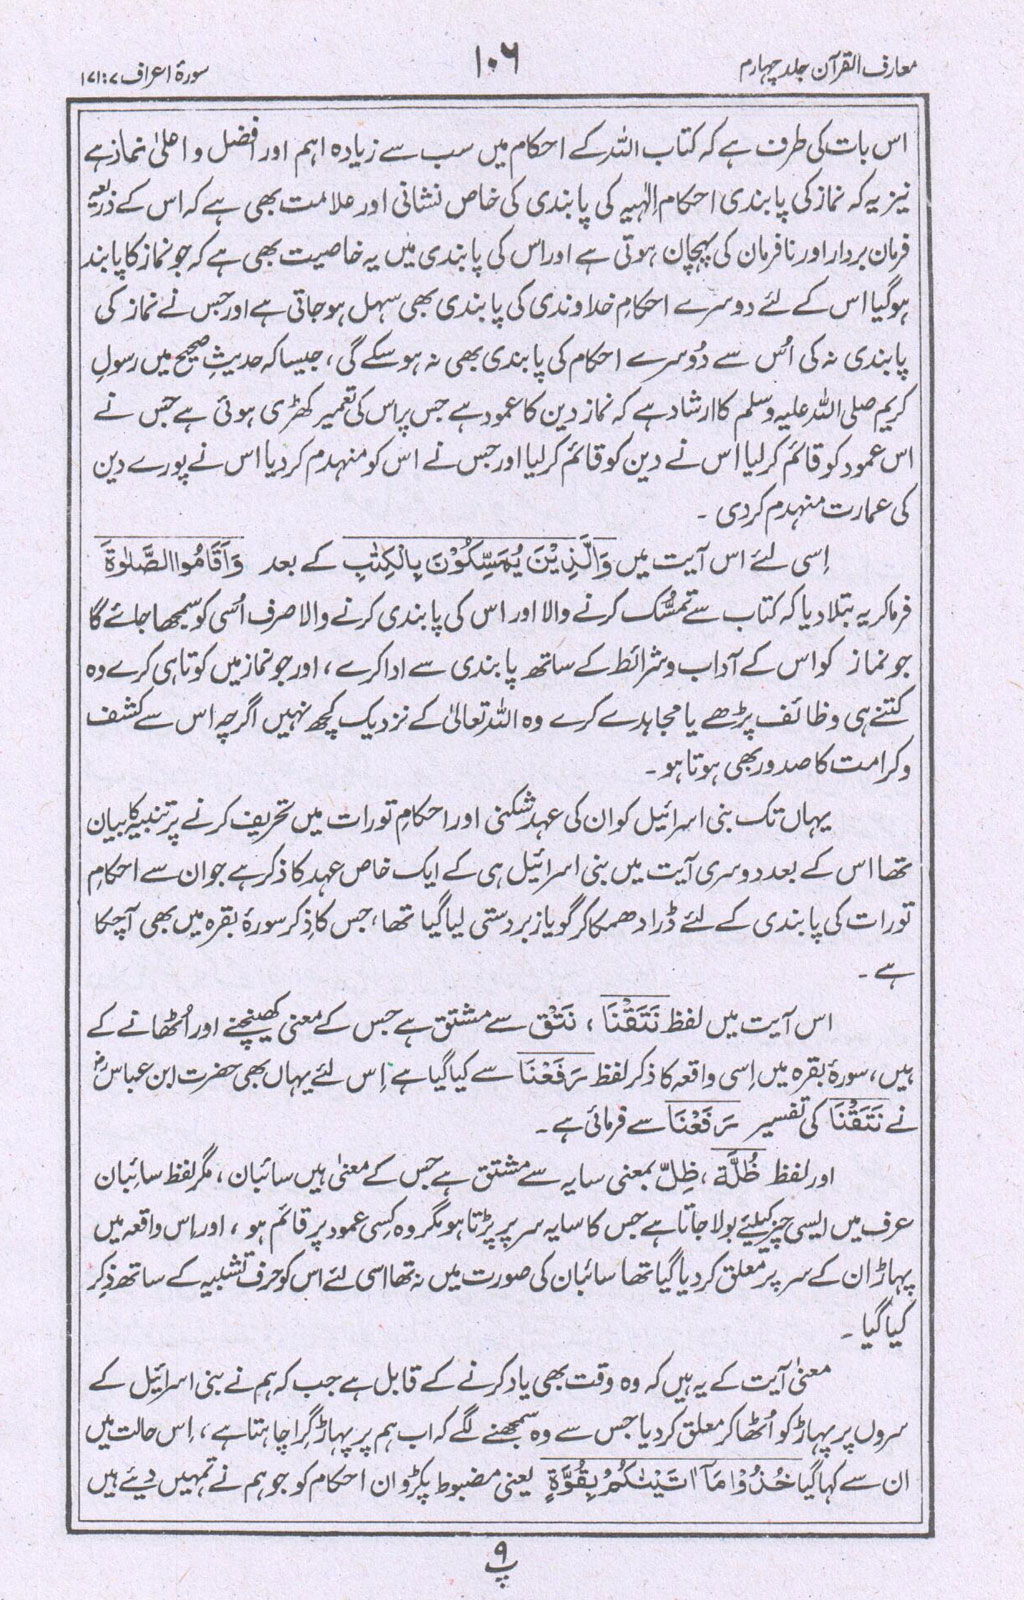 معارف القرآن جلد چہارم
۱۰۶
سورۂ اعراف ۷ : ۱۷۱
اس بات کی طرف ہے کہ کتاب اللہ کے احکام میں سب سے زیادہ اہم اور افضل و اعلیٰ نماز ہے
نیز یہ کہ نماز کی پابندی احکام الٰہیہ کی پابندی کی خاص نشانی اور علامت بھی ہے کہ اس کے ذریعہ
فرمان بردار اور نافرمان کی پہچان ہوتی ہے اور اس کی پابندی میں یہ خاصیت بھی ہے کہ جو نماز کا پابند
ہو گیا اس کے لئے دوسرے احکامِ خداوندی کی پابندی بھی سہل ہو جاتی ہے اور جس نے نماز کی
پابندی نہ کی اُس سے دُوسرے احکام کی پابندی بھی نہ ہو سکے گی، جیسا کہ حدیثِ صحیح میں رسولِ
کریم صلی اللہ علیہ وسلم کا ارشاد ہے کہ نماز دین کا عمود ہے جس پر اس کی تعمیر کھڑی ہوئی ہے جس نے
اس عمود کو قائم کر لیا اس نے دین کو قائم کر لیا اور جس نے اس کو منہدم کر دیا اس نے پورے دین
کی عمارت منہدم کر دی ۔
اِسی لئے اس آیت میں وَالَّذِيْنَ يُمَسِّكُوْنَ بِالْكِتٰبِ کے بعد وَاَقَامُوا الصَّلٰوةَ
فرما کر یہ بتلا دیا کہ کتاب سے تمسُّک کرنے والا اور اس کی پابندی کرنے والا صرف اُسی کو سمجھا جائے گا
جو نماز کو اس کے آداب و شرائط کے ساتھ پابندی سے ادا کرے، اور جو نماز میں کوتاہی کرے وہ
کتنے ہی وظائف پڑھے یا مجاہدے کرے وہ اللہ تعالیٰ کے نزدیک کچھ نہیں اگرچہ اس سے کشف
و کرامت کا صدور بھی ہوتا ہو ۔
یہاں تک بنی اسرائیل کو ان کی عہد شکنی اور احکامِ تورات میں تحریف کرنے پر تنبیہ کا بیان
تھا اس کے بعد دوسری آیت میں بنی اسرائیل ہی کے ایک خاص عہد کا ذکر ہے جو ان سے احکامِ
تورات کی پابندی کے لئے ڈرا دھمکا کر گویا زبردستی لیا گیا تھا، جس کا ذِکر سورۂ بقرہ میں بھی آچکا
ہے ۔
اس آیت میں لفظ نَتَقْنَا ، نَتْق سے مشتق ہے جس کے معنی کھینچنے اور اُٹھانے کے
ہیں، سورۂ بقرہ میں اِسی واقعہ کا ذکر لفظ رَفَعْنَا سے کیا گیا ہے اِس لئے یہاں بھی حضرت ابن عباس رض
نے نَتَقْنَا کی تفسیر رَفَعْنَا سے فرمائی ہے ۔
اور لفظ ظُلَّة ، ظِلّ بمعنی سایہ سے مشتق ہے جس کے معنیٰ ہیں سائبان، مگر لفظ سائبان
عرف میں ایسی چیز کیلئے بولا جاتا ہے جس کا سایہ سر پر پڑتا ہو مگر وہ کِسی عمود پر قائم ہو ، اور اِس واقعہ میں
پہاڑ ان کے سر پر معلق کر دیا گیا تھا سائبان کی صورت میں نہ تھا اسی لئے اس کو حرف تشبیہ کے ساتھ ذِکر
کیا گیا ۔
معنیٰ آیت کے یہ ہیں کہ وہ وقت بھی یاد کرنے کے قابل ہے جب کہ ہم نے بنی اسرائیل کے
سروں پر پہاڑ کو اُٹھا کر معلق کر دیا جس سے وہ سمجھنے لگے کہ اب ہم پر پہاڑ گِرا چاہتا ہے، اِس حالت میں
ان سے کہا گیا خُذُوْا مَآ اٰتَيْنٰكُمْ بِقُوَّةٍ یعنی مضبوط پکڑو ان احکام کو جو ہم نے تمہیں دیئے ہیں
پ ۹